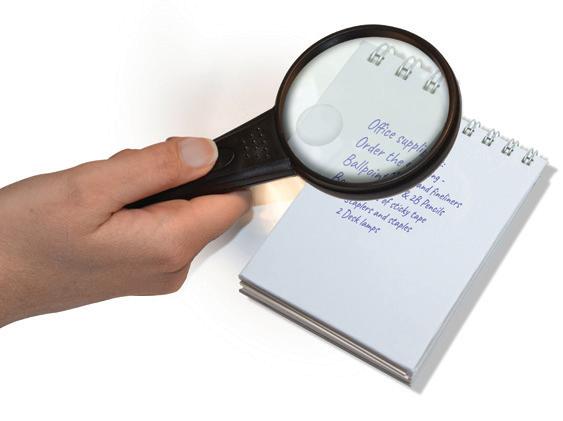 Office
Order the
and fineliners
& 2B Pencils
of sticky tape
Staplers and staples
2 Desk lamps